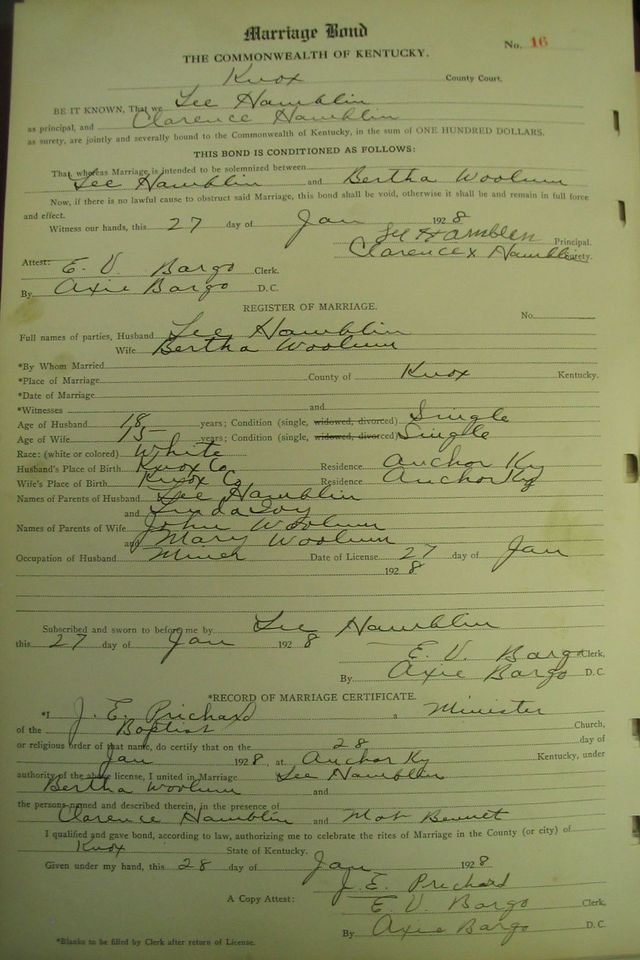 Marriage Bond
No. 16
THE COMMONWEALTH OF KENTUCKY.
Knox County Court.
BE IT KNOWN, That we Lee Hamblin
as principal, and Clarence Hamblin
as surety, are jointly and severally bound to the Commonwealth of Kentucky, in the sum of ONE HUNDRED DOLLARS.
THIS BOND IS CONDITIONED AS FOLLOWS:
That whereas Marriage is intended to be solemnized between
Lee Hamblin and Bertha Woolum
Now, if there is no lawful cause to obstruct said Marriage, this bond shall be void, otherwise it shall be and remain in full force
and effect.
Witness our hands, this 27 day of Jan 1928
Lee Hamblen Principal.
Clarence x Hamblin Surety.
Attest: E. V. Bargo Clerk.
By Axie Bargo D. C.
REGISTER OF MARRIAGE.
No.
Full names of parties, Husband Lee Hamblin
Wife Bertha Woolum
*By Whom Married
*Place of Marriage County of Knox Kentucky.
*Date of Marriage
*Witnesses and
Age of Husband 18 years; Condition (single, widowed, divorced) Single
Age of Wife 15 years; Condition (single, widowed, divorced) Single
Race: (white or colored) White
Husband's Place of Birth Knox Co Residence Anchor Ky
Wife's Place of Birth Knox Co Residence Anchor Ky
Names of Parents of Husband Lee Hamblin
and Linda
Names of Parents of Wife John Woolum
and Mary Woolum
Occupation of Husband Miner Date of License 27 day of Jan
1928
Subscribed and sworn to before me by Lee Hamblin
this 27 day of Jan 1928
E. V. Bargo Clerk,
By Axie Bargo D. C.
*RECORD OF MARRIAGE CERTIFICATE.
*I J. E. Prichard a Minister
of the Baptist Church,
or religious order of that name, do certify that on the 28 day of
Jan 1928, at Anchor Ky Kentucky, under
authority of the above license, I united in Marriage Lee Hamblin
Bertha Woolum and
the persons named and described therein, in the presence of
Clarence Hamblin and Mat Bennet
I qualified and gave bond, according to law, authorizing me to celebrate the rites of Marriage in the County (or city) of
Knox State of Kentucky.
Given under my hand, this 28 day of Jan 1928
J. E. Prichard
A Copy Attest: E. V. Bargo Clerk,
By Axie Bargo D. C.
*Blanks to be filled by Clerk after return of License.